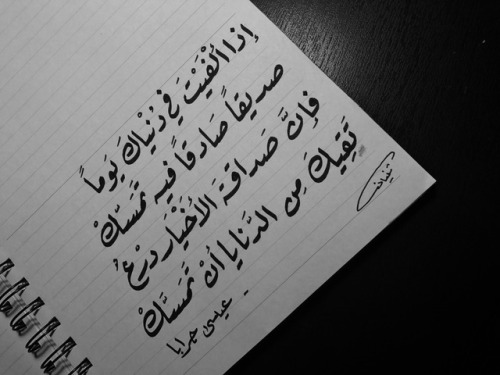 إذا ألْفَيْتَ في دُنْيَاكَ يَوماً
صديقاً صَادقاً فيه تمَسّكْ
فإنَّ صَداقة الأخْيَار دِرْعٌ
تَقِيكَ مِن الدَّنايا أنْ تَمَسَّكْ
- عيسى جرابا